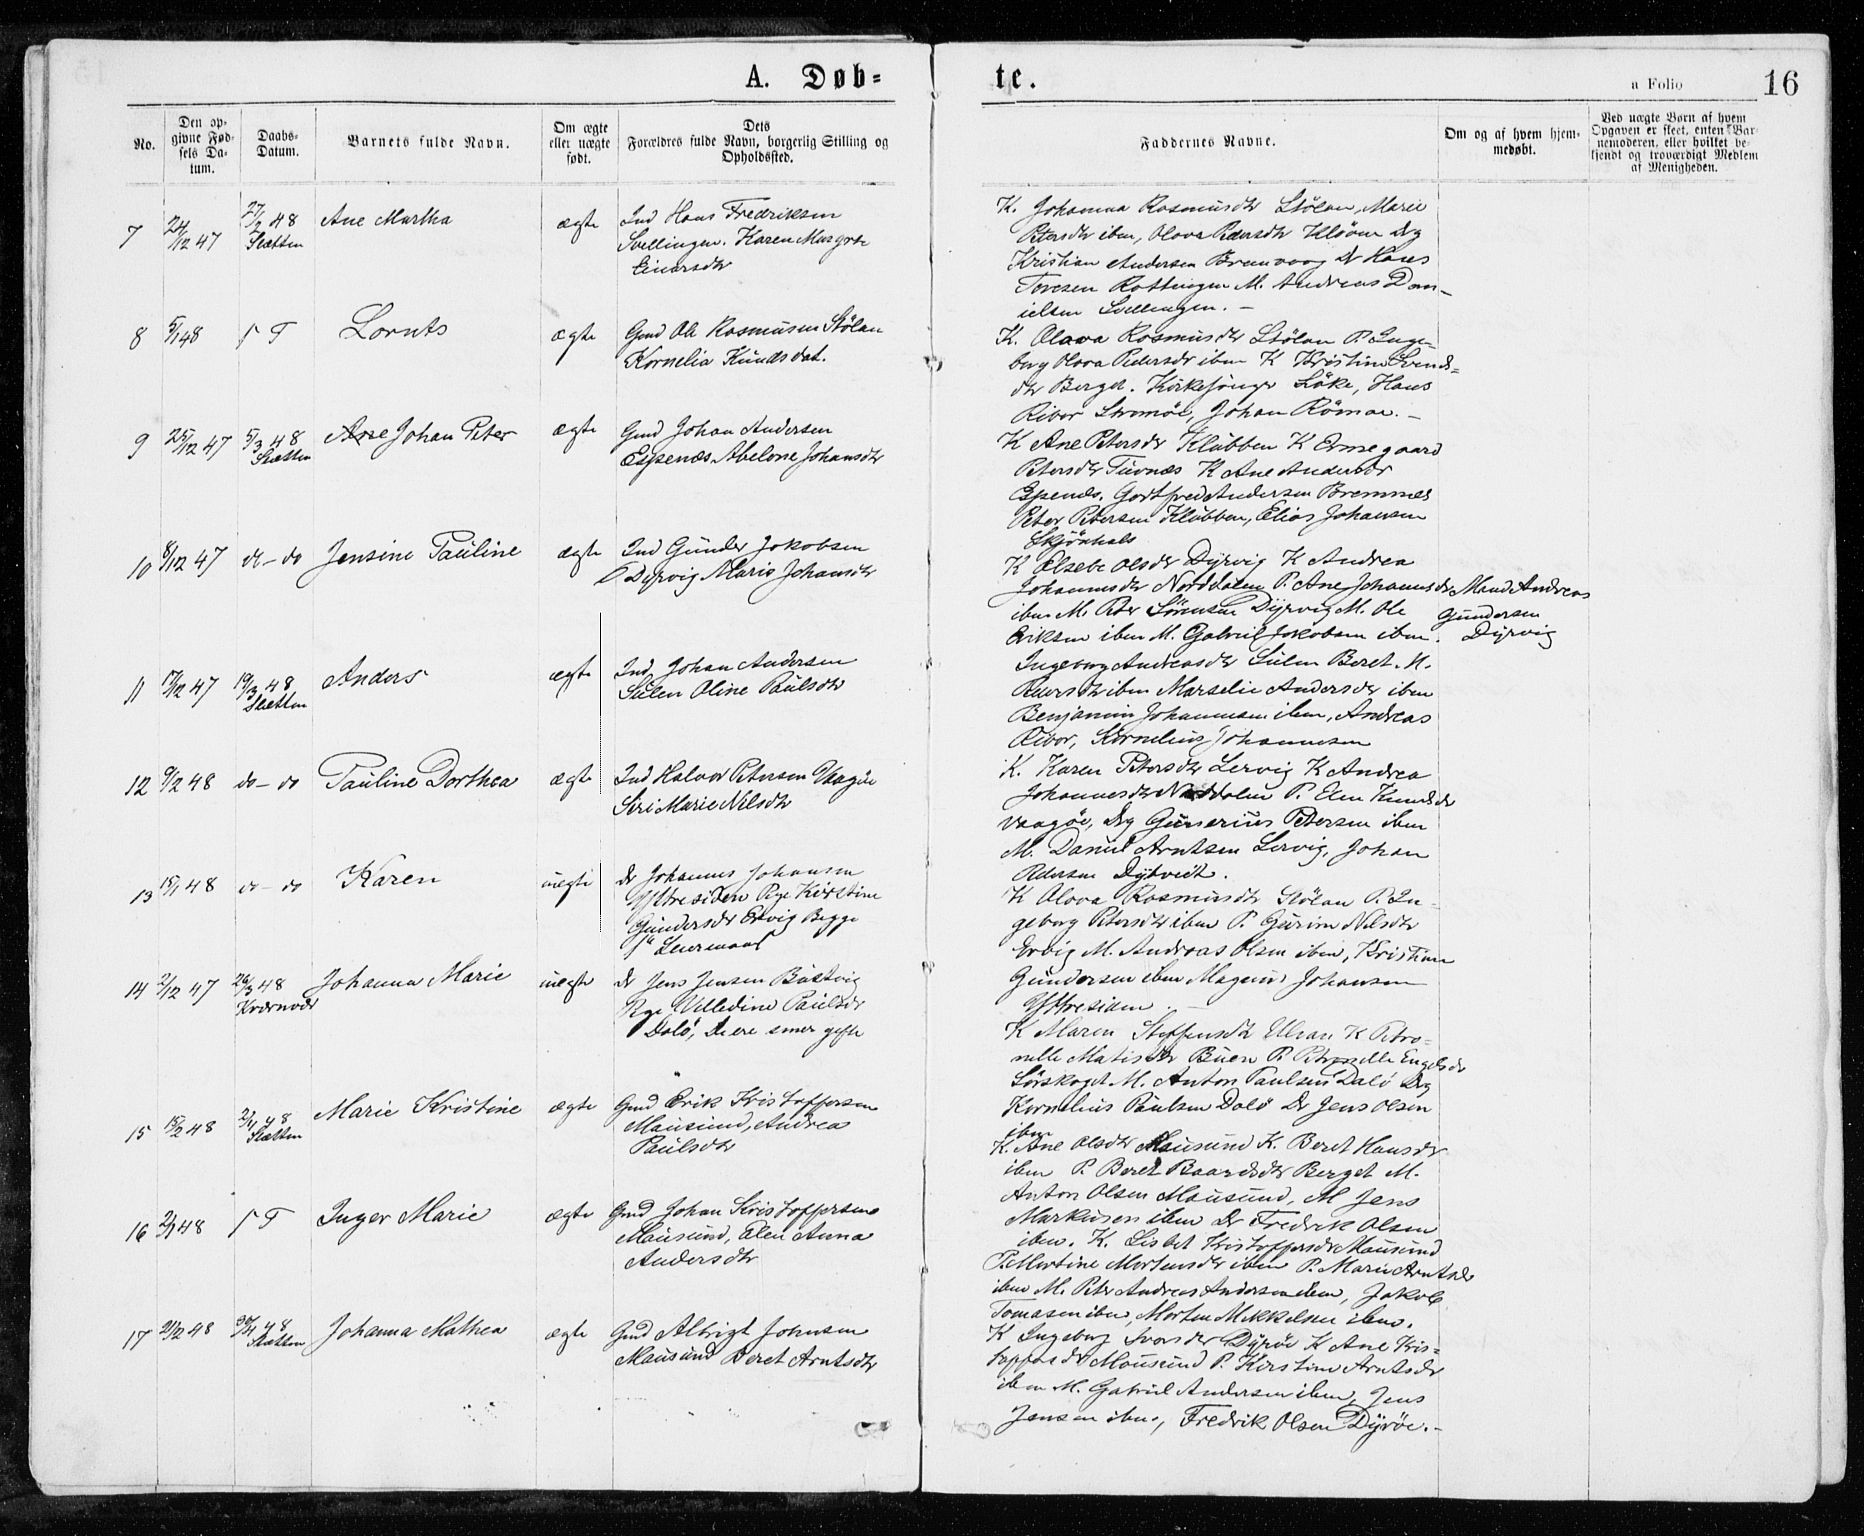 A. Døb=
te.
a Folio 16
No.
Den op-
givne Fød-
sels Da-
tum.
Daabs-
Datum.
Barnets fulde Navn.
Om ægte
eller uægte
født.
Dets
Forældres fulde Navn, borgerlig Stilling og
Opholdssted.
Faddernes Navne.
Om og af hvem hjem-
medøbt.
Ved uægte Børn af hvem
Opgaven er skeet, enten Bar-
nemoderen, eller hvilket be-
kjendt og troværdigt Medlem
af Menigheden.
7 24/12 47
27/2 48
Sletten
Ane Martha
ægte
Ind Hans Fredriksen
Svellingen. Karen Margrte
Einarsdtr
K. Johanna Rasmusdtr Stølan, Marie
Petersdtr ibm, Olova Pedersdtr Kløven Drg
Kristian Andersen Bremvaag Dr Hans
Toresen Rottingen M. Andreas Dan-
ielsen Svellingen. -
8 5/1 48
Lornts
ægte
Gmd Ole Rasmusen Stølan
Kornelia Knudsdat.
K. Olava Rasmusdtr Stølan P. Inge-
borg Olova Pedersdr ibm K Kristine Svends=
dtr Berget. Kirkesanger Løke, Hans
Ribor Strømøe, Johan Römae. -
9 25/12 47
5/3 48
Sletten
Johan Peter
ægte
Gmd Johan Andersen
Espenæs, Abelone Johansdtr
K Ane Petersdr Klubben K Ermegaard
Petersdtr Tuvnæs K Ane Andersdr
Espenæs. Gortfred Andersen Bremnes
Peter Petersen Klubben, Elias Johansen
Skjönhals
10 8/12 47
do - do
Jensine Pauline
ægte
Ind Gunder Jakobsen
Dyrvig Maris Johansdtr
K Elsebe Olsdr Dyrvig K Andrea
Johannesdtr Norddalen P. Ane Johannsdr
ibm M. Peter Sørensen Dyrvig M. Ole
Eriksen ibm M. Gabriel Jakobsen ibm.
Mand Andreas
Gundersen
Dyrvig
11 17/12 47
19/3 48
Sletten
Anders
ægte
Ind Johan Andersen
Sulen Oline Paulsdtr
Ingeborg Andreasdtr Sulen Beret M.
Pedersdtr ibm Marselie Andersdr ibm
Benjamin Johannesen ibm, Andreas
Ribor, Kornelius Johannesen
12 9/2 48
do - do
Pauline Dorthea
ægte
Ind Halvor Petersen Vaagøe
Siri Marie Nilsdtr
K. Karen Petersdtr Lervig K Andrea
Johannesdtr Norddalen P. Elen Knudsdr
Vaagöe, Drg Gunerius Petersen ibm
M. Daniel Arntsen Lervig, Johan
Pedersen Dybvedt.
13 15/1 48
do - do
Karen
uægte
Dr Johannes Johansen
Yttresiden Pige Kirstine
Gundersdr Ervig Begge
1ste Leiermaal
K Olova Rasmusdtr Stölan P. In-
geborg Petersdtr ibm P. Gurine Nilsdtr
Ervig M. Andreas Olsen ibm, Kristian
Gundersen ibm Magnus Johansen
Yttresiden -
14 2/12 47
26/3 48
Kværnvær
Johanna Marie
uægte
Dr Jens Jensen Bustvig
Pige Velledine Paulsdr
Dolö, De ere siner gifte
K Maren Steffensdtr Ulvan K Petro=
nelle Matisdtr Buen P. Petronelle Engelsdr
Sörskaget M. Anton Paulsen Dolö Drg
Kornelius Paulsen Dolö Dr Jens Olsen
ibm
15 15/2 48
2/4 48
Sletten
Marie Kristine
ægte
Gmd Erik Kristoffersen
Mausund, Andrea
Paulsdtr
K. Ane Olsdtr Mausund K. Beret Hansdr
ibm P. Beret Baardsdtr Berget M.
Anton Olsen Mausund, M Jens
Markusen ibm Dr Fredrik Olsen
ibm.
16 2/1 48
Inger Marie
ægte
Gmd Johan Kristoffersen
Mausund, Elen Anna
Andersdtr
K. Lisbet Kristoffersdr Mausund
P. Martine Mortensdr ibm P. Marie Arntsdr
ibm M. Peter Andreas Andersen ibm, Jakob
Tomasen ibm, Morten Mikkelsen ibm.
17 21/2 48
30/4 48
Sletten
Johanna Mathea
ægte
Gmd Albrigt Johnsen
Mausund Beret Arntsdtr
K Ingeborg Ivarsdr Dyrøe K Ane Kris-
toffersdr Mausund P. Kirstine Arntsdr
ibm M. Gabriel Andersen ibm, Jens
Jensen ibm, Fredrik Olsen Dyröe. -